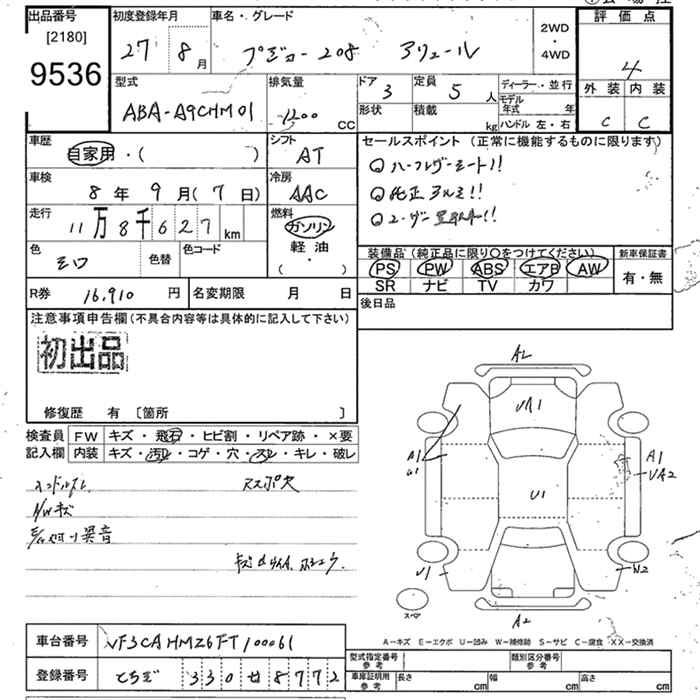 出品番号 初度登録年月 車名・グレード 評価点
[2180]
9536
27 8月 プジョー 208 アリュール 2WD・4WD 4
型式 排気量 ドア 定員 ディーラー・並行 外装 内装
ABA-A9CHM01 1200 CC 3 5人 モデル年式 年 C C
形状 積載 kg ハンドル 左・右
車歴 シフト セールスポイント (正常に機能するものに限ります)
自家用・( ) AT ハーフレザーシート!!
車検 冷房
8年 9月 (7日) AAC 純正アルミ!!
走行 燃料
11万8千627km ガソリン
軽油
( ・ )
色 色替 色コード 装備品(純正品に限り〇をつけてください) 新車保証書
シロ PS PW ABS エアB AW 有・無
SR ナビ TV カワ
R券 16,910円 名変期限 月 日 後日品
注意事項申告欄(不具合内容等は具体的に記入して下さい)
初出品
修復歴 有 〔箇所 〕
検査員 FW キズ・飛石・ヒビ割・リペア跡・×要
記入欄 内装 キズ・汚レ・コゲ・穴・スレ・キレ・破レ
ハンドルスレ
N/Wキズ
異音
A2
UA1
A1
U1
U1
A1
UA2
U1
W2
スペア
A2
A-キズ E-エクボ U-凹み W-補修跡 S-サビ C-腐食 XX-交換済
車台番号 VF3CAHMZ6FT100061
型式指定番号 参考 類別区分番号 参考
登録番号 とちぎ 330 せ 8772
車庫証明用 参考 長さ cm 幅 cm 高さ cm